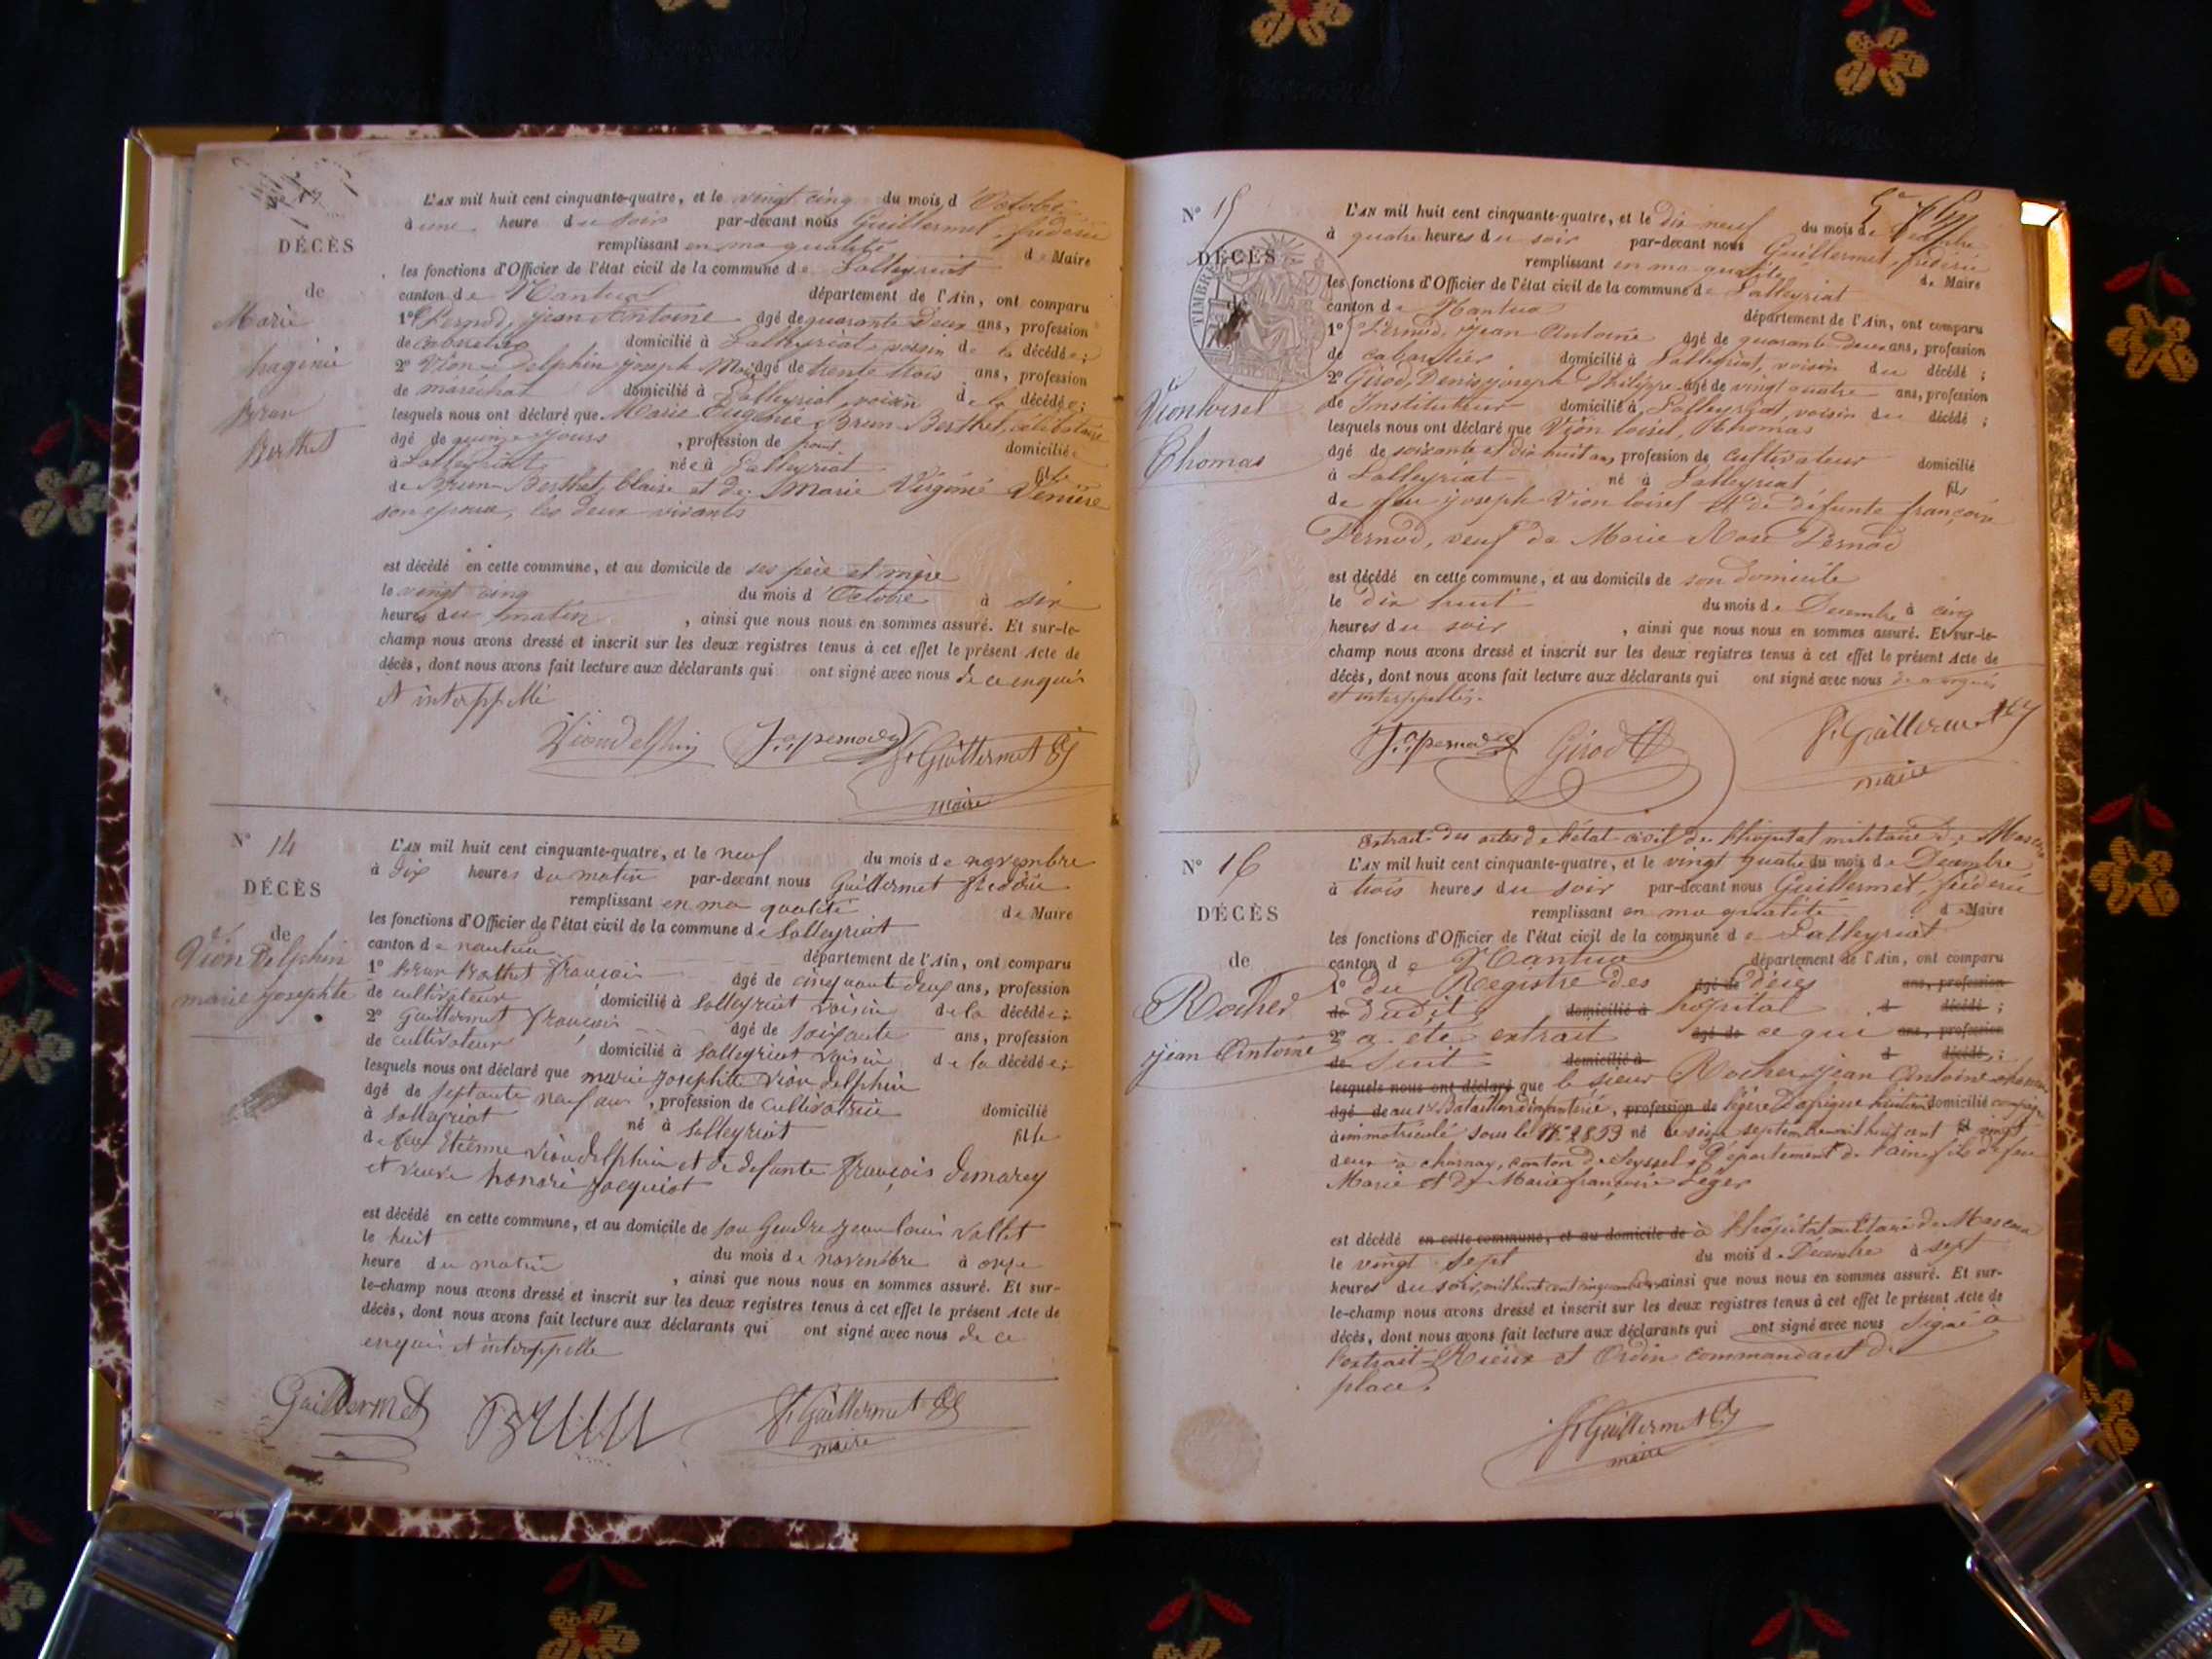 DÉCÈS
de
Marie
Brun
Berthet
L'AN mil huit cent cinquante-quatre, et le vingt cinq du mois d'Octobre
à une heure du soir par-devant nous Guillermet, frédéric
remplissant en ma qualité de Maire
les fonctions d'Officier de l'état civil de la commune de Lalleyriat
canton de Nantua département de l'Ain, ont comparu
1° Pernod, jean Antoine âgé de quarante deux ans, profession
de cabaretier domicilié à Lalleyriat, voisin de la décédée;
2° Vion-Delphin joseph Marie âgé de trente trois ans, profession
de maréchal domicilié à Lalleyriat, voisin de la décédée;
lesquels nous ont déclaré que Marie Eugénie Brun-Berthet, célibataire
âgé de quinze jours , profession de domiciliée
à Lalleyriat née à Lalleyriat fille
de Brun-Berthet, blaise et de Marie Virginie
son épouse, les deux vivants
est décédé en cette commune, et au domicile de ses père et mère
le vingt cinq du mois d'Octobre à six
heures du matin , ainsi que nous nous en sommes assuré. Et sur-le-
champ nous avons dressé et inscrit sur les deux registres tenus à cet effet le présent Acte de
décès, dont nous avons fait lecture aux déclarants qui ont signé avec nous de ce enquis
et interppellé
Viondelphin J. a. pernod F. Guillermet
maire
N° 14
DÉCÈS
de
Vion Delphin
marie josephte
L'AN mil huit cent cinquante-quatre, et le neuf du mois de novembre
à dix heures du matin par-devant nous Guillermet fredéric
remplissant en ma qualité de Maire
les fonctions d'Officier de l'état civil de la commune de Lalleyriat
canton de nantua département de l'Ain, ont comparu
1° Brun Berthet françois âgé de cinquante deux ans, profession
de cultivateur domicilié à Lalleyriat voisin de la décédée;
2° Guillermet françois âgé de soixante ans, profession
de cultivateur domicilié à Lalleyriat voisin de la décédée;
lesquels nous ont déclaré que marie josephte vion delphin
âgé de septante neuf ans , profession de cultivatrice domicilié
à Lalleyriat né à Lalleyriat fille
de feu Etienne vion delphin et de defunte françois demarey
et veuve honoré jacquiot
est décédé en cette commune, et au domicile de son Gendre jean louis vallet
le huit du mois de novembre à onze
heure du matin , ainsi que nous nous en sommes assuré. Et sur-
le-champ nous avons dressé et inscrit sur les deux registres tenus à cet effet le présent Acte de
décès, dont nous avons fait lecture aux déclarants qui ont signé avec nous de ce
enquis et interppellé
Guillermet BRUN F. Guillermet
maire
N° 15
DÉCÈS
de
TIMBRE
Vion loisel
Thomas
L'AN mil huit cent cinquante-quatre, et le dix neuf du mois de
à quatre heures du soir par-devant nous Guillermet, frédéric
remplissant en ma qualité de Maire
les fonctions d'Officier de l'état civil de la commune de Lalleyriat
canton de Nantua département de l'Ain, ont comparu
1° Pernod, jean Antoine âgé de quarante deux ans, profession
de cabaretier domicilié à Lalleyriat, voisin du décédé ;
2° Girod, Denis joseph Philippe âgé de vingt quatre ans, profession
de Instituteur domicilié à Lalleyriat, voisin du décédé ;
lesquels nous ont déclaré que Vion loisel, Thomas
âgé de soixante et dix huit ans, profession de cultivateur domicilié
à Lalleyriat né à Lalleyriat fils
de feu joseph Vion loisel et de défunte françoise
Pernod, veuf de Marie Rose Pernod
est décédé en cette commune, et au domicile de son domicile
le dix huit du mois de Decembre à cinq
heures du soir , ainsi que nous nous en sommes assuré. Et sur-le-
champ nous avons dressé et inscrit sur les deux registres tenus à cet effet le présent Acte de
décès, dont nous avons fait lecture aux déclarants qui ont signé avec nous de ce enquis
et interppellés.
J. a. pernod Girod F. Guillermet
maire
Extrait des actes de l'état-civil de l'hôpital militaire de Mascara
N° 16
DÉCÈS
de
Rocher
jean Antoine
L'AN mil huit cent cinquante-quatre, et le vingt quatre du mois de Decembre
à trois heures du soir par-devant nous Guillermet, frédéric
remplissant en ma qualité de Maire
les fonctions d'Officier de l'état civil de la commune de Lalleyriat
canton de Nantua département de l'Ain, ont comparu
1° du Registre des âgé de décès ans, profession
de dudit domicilié à hôpital d décédé ;
2° a été extrait âgé de ce qui ans, profession
de suit domicilié à d décédé ;
lesquels nous ont déclaré que le sieur Rocher jean Antoine
âgé de au Bataillon d'infanterie, profession de légère d'afrique domicilié compagnie
à immatriculé sous le N° 2859 né le seize septembre mil huit cent vingt
deux à charnay, canton de Seyssel, Département de l'ain, fils de feu
Marie et de Marie françoise Léger
est décédé en cette commune, et au domicile de à l'hôpital militaire de Mascara
le vingt sept du mois de Decembre à sept
heures du soir, mil huit cent cinquante ainsi que nous nous en sommes assuré. Et sur-
le-champ nous avons dressé et inscrit sur les deux registres tenus à cet effet le présent Acte de
décès, dont nous avons fait lecture aux déclarants qui ont signé avec nous Signé à
l'extrait et commandant de
place.
F. Guillermet
maire